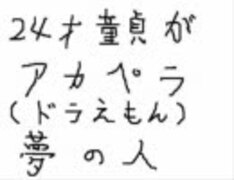 24才童貞が
アカペラ
(ドラえもん)
夢の人